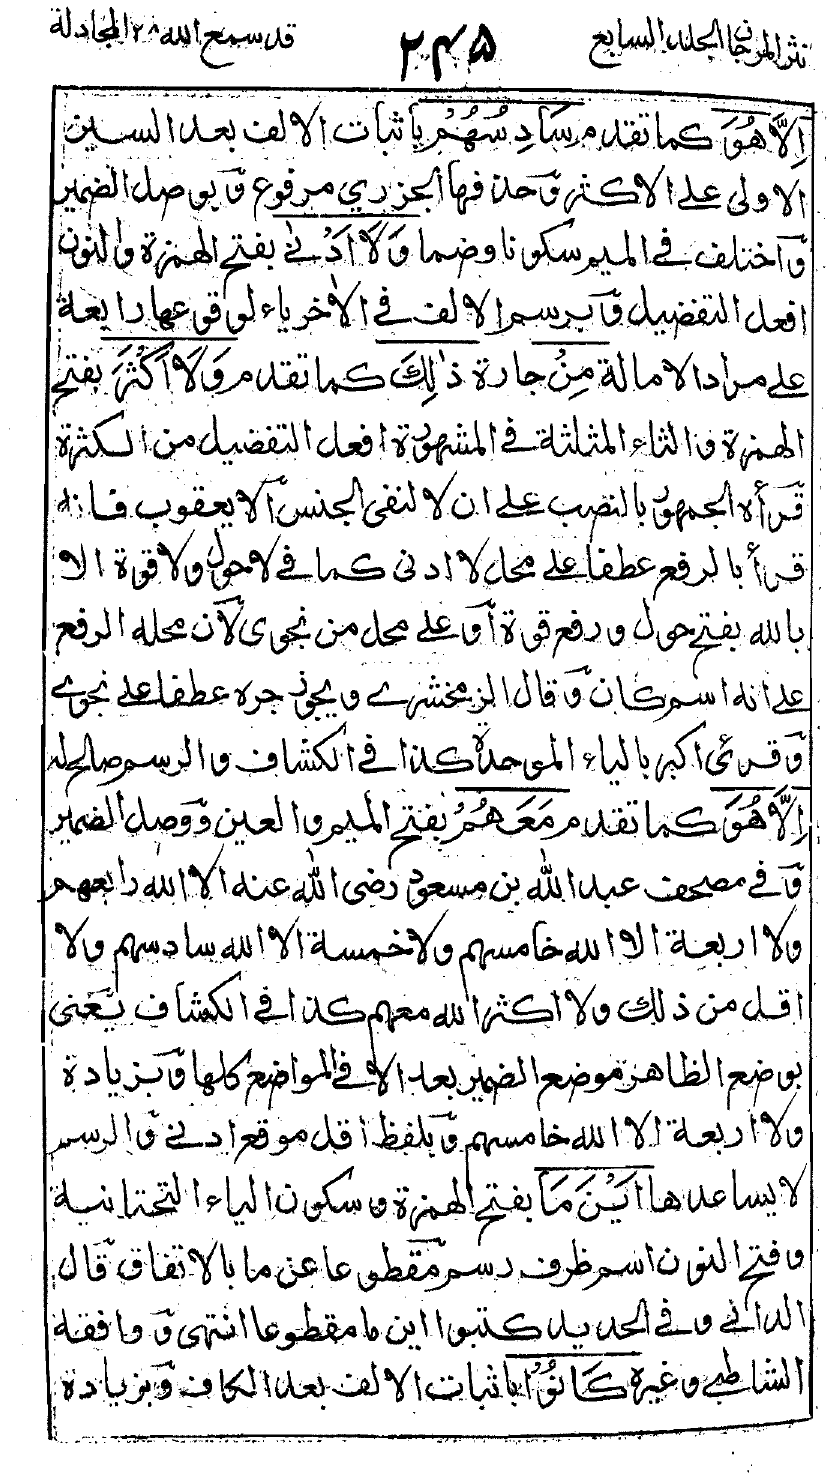 نثر المرجان الجلد السابع ٢٤٥ قد سمع الله ٢٨ المجادلة
اِلَّا هُوَ كما تقدم سَادِسُهُمْ باثبات الالف بعد السين
الاولى على الاكثر وحذفها الجزري مرفوع وبوصل الضمير
واختلف في الميم سكونا وضما وَلَا اَدْنٰى بفتح الهمزة والنون
افعل التفضيل وبرسم الالف في الاٰخر ياء لوقوعها رابعة
على مراد الامالة مِنْ جارة ذٰلِكَ كما تقدم وَلَا اَكْثَرَ بفتح
الهمزة والثاء المثلثة في المشهورة افعل التفضيل من الكثرة
قرأه الجمهور بالنصب على ان لا لنفى الجنس الا يعقوب فانه
قرأ بالرفع عطفا على محل لا ادنى كما في لا حول ولا قوة الا
بالله بفتح حول ورفع قوة أو على محل من نجوى لأن محله الرفع
على انه اسم كان وقال الزمخشرے ويجوز جره عطفا على نجوے
وقرئ اكبر بالباء الموحدة كذا في الكشاف والرسم صالح له
اِلَّا هُوَ كما تقدم مَعَهُمْ بفتح الميم والعين ووصل الضمير
وفي مصحف عبد الله بن مسعود رضى الله عنه الا الله رابعهم
ولا اربعة الا الله خامسهم ولا خمسة الا الله سادسهم ولا
اقل من ذلك ولا اكثر الله معهم كذا في الكشاف يعنى
بوضع الظاهر موضع الضمير بعد الا في المواضع كلها وبزيادة
ولا اربعة الا الله خامسهم وبلفظ اقل موقع ادنے والرسم
لا يساعدها اَيْنَ مَا بفتح الهمزة وسكون الياء التحتانية
وفتح النون اسم ظرف رسم مقطوعا عن ما بالاتفاق قال
الدانے وفے الحديد كتبوا اين ما مقطوعا انتهى ووافقه
الشاطبے وغيره كَانُوْا باثبات الالف بعد الكاف وبزيادة